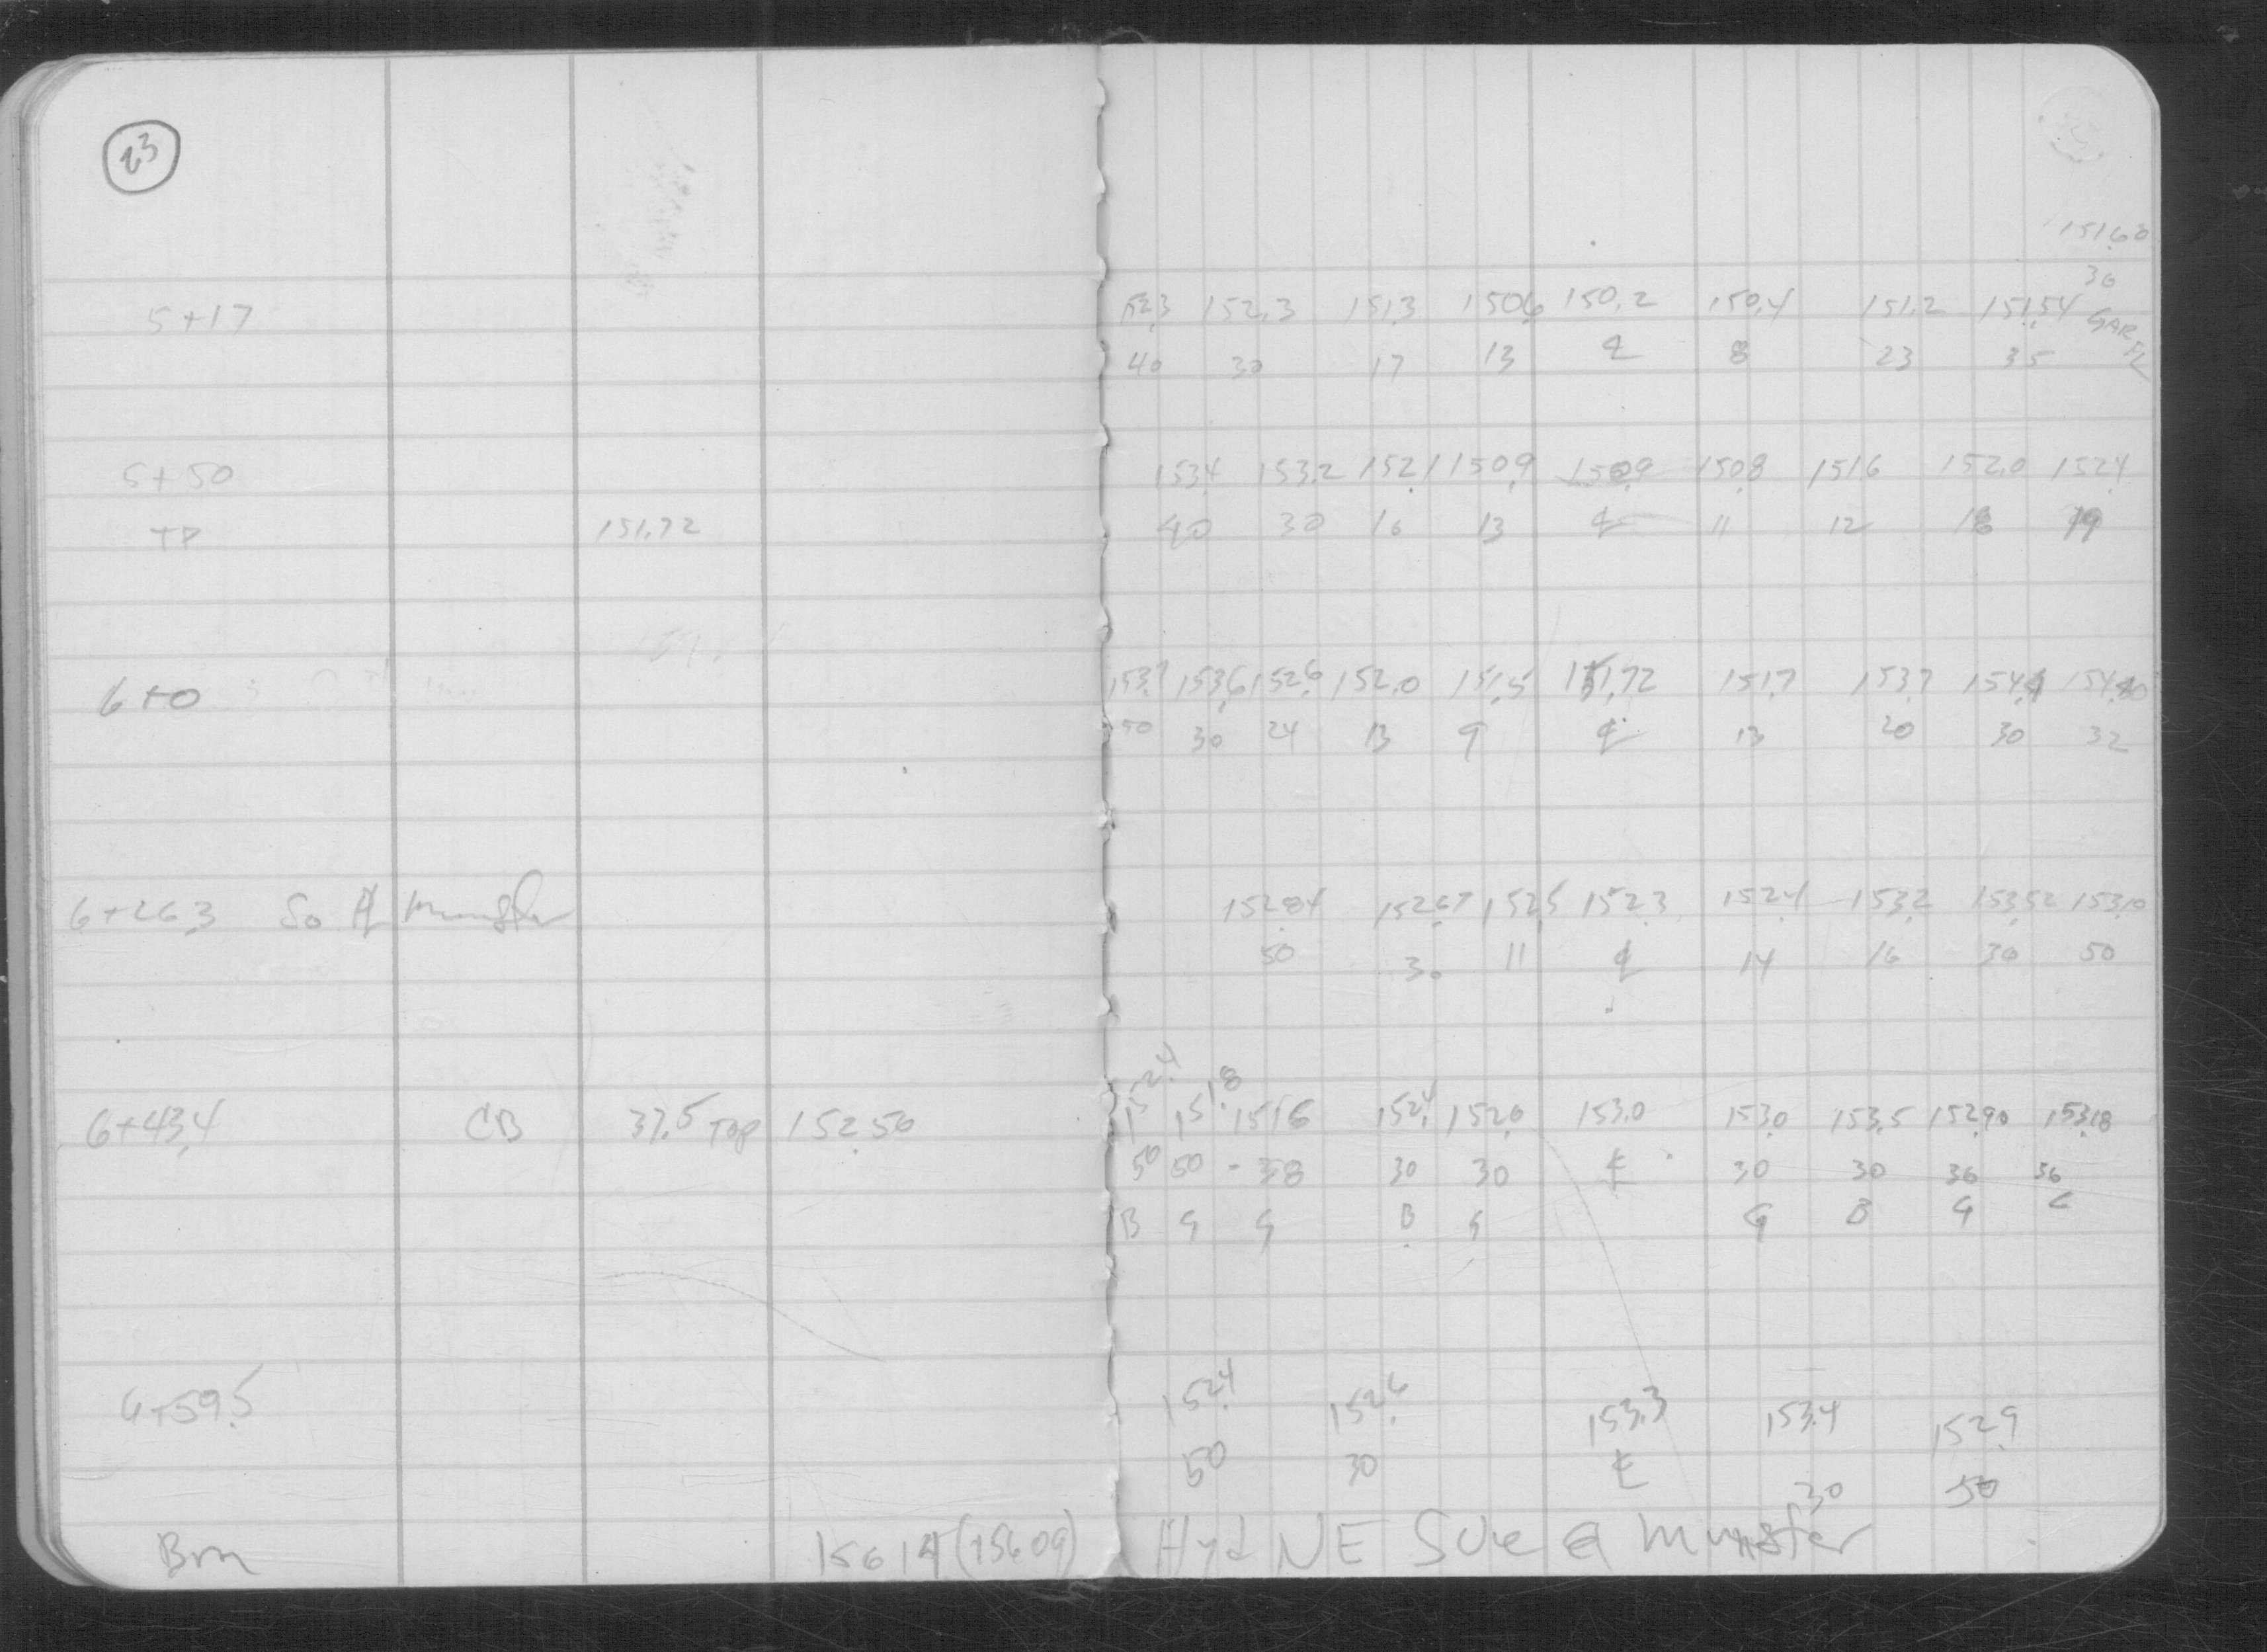 23
151.60
36
5+17 152.3 152.3 151.3 150.6 150.2 150.4 151.2 151.54 GAR FL
40 30 17 13 ℄ 8 23 35
5+50 153.4 153.2 152.1 150.9 150.9 150.8 151.6 152.0 152.4
TP 151.72 40 30 16 13 ℄ 11 12 18 19
6+0 153.7 153.6 152.6 152.0 151.5 151.72 151.7 153.7 154.4
50 30 24 13 9 ℄ 13 20 30 32
6+26.3 So munster 152.84 152.67 152.5 152.3 152.4 153.2 153.52 153.10
50 30 11 ℄ 14 16 30 50
6+43.4 CB 37.5 Top 152.50 152.4 151.8 151.6 152.4 152.0 153.0 153.0 153.5 152.90 153.18
50 50 - 38 30 30 ℄ 30 30 36 36
B G G B G G B G C
6+59.5 152.4 152.6 153.3 153.4 152.9
50 30 ℄ 30 50
Bm 156.14 (156.09) Hyd NE @ munster